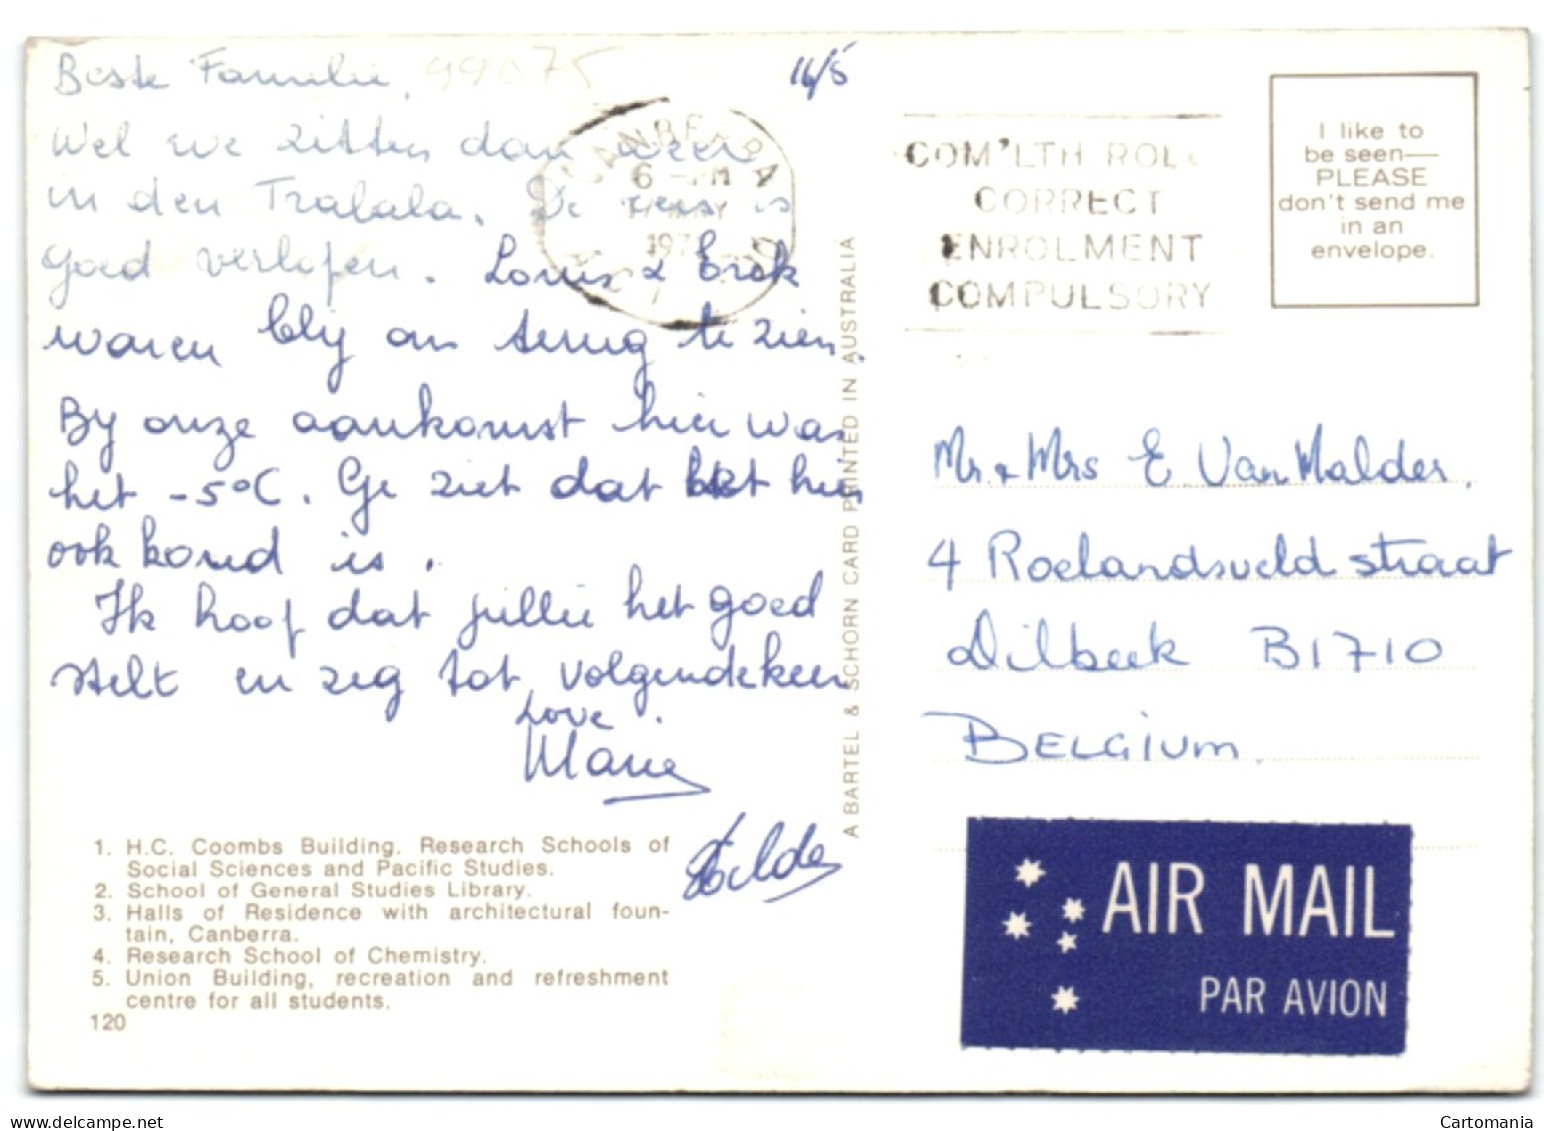 Beste Familie,
99075
Wel we zitten dan weer
in den Tralala. De reis is
goed verlopen. Louis & Erek
waren blij om terug te zien.
By onze aankomst hier was
het -5°C. Ge ziet dat het hier
ook koud is.
Ik hoop dat jullie het goed
stelt en zeg tot volgendekeer
Love.
Marie
Hilda
1. H.C. Coombs Building. Research Schools of
Social Sciences and Pacific Studies.
2. School of General Studies Library.
3. Halls of Residence with architectural foun-
tain, Canberra.
4. Research School of Chemistry.
5. Union Building, recreation and refreshment
centre for all students.
120
A BARTEL & SCHORN CARD PRINTED IN AUSTRALIA
16/5
CANBERRA
6 -PM
MAY
197
A.C.T.
COM'LTH ROL
CORRECT
ENROLMENT
COMPULSORY
I like to
be seen—
PLEASE
don't send me
in an
envelope.
Mr. & Mrs E. Van Malder.
4 Roelandsveldstraat
Dilbeek B1710
BELGIUM.
AIR MAIL
PAR AVION
delcampe.net
Cartomania